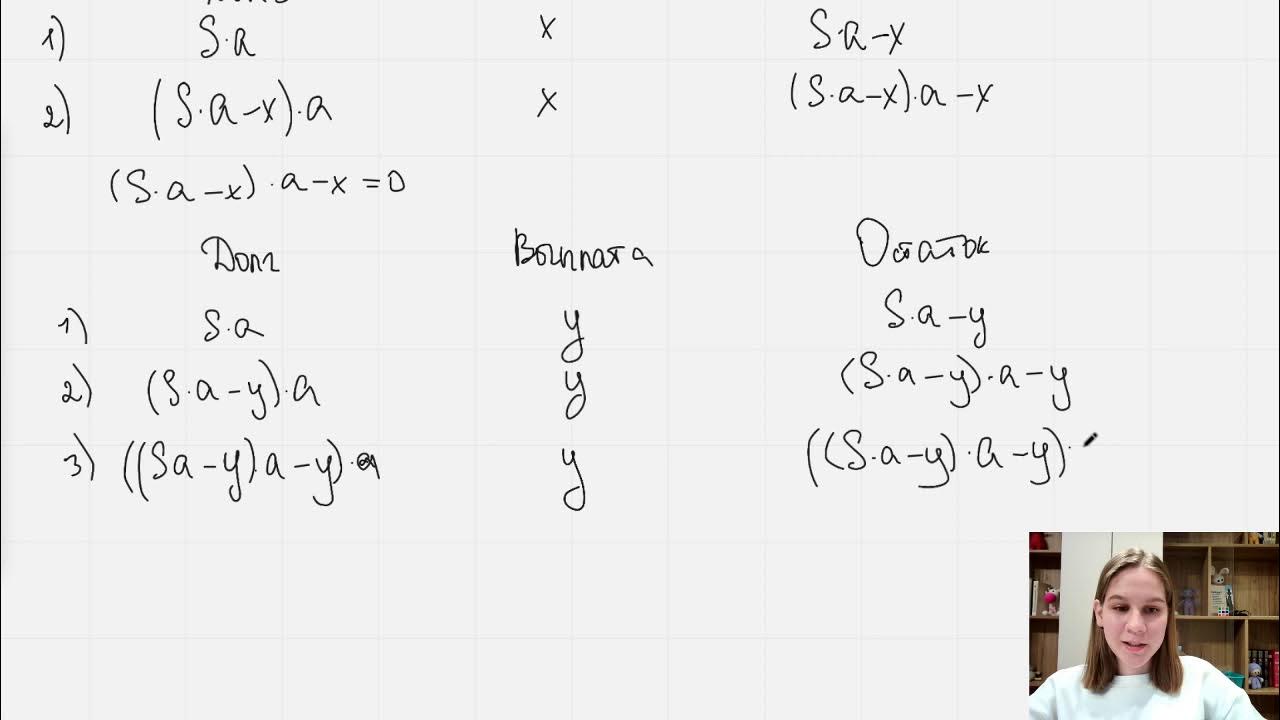 1) S·a x S·a-x
2) (S·a-x)·a x (S·a-x)·a-x
(S·a-x)·a-x=0
Долг Выплата Остаток
1) S·a y S·a-y
2) (S·a-y)·a y (S·a-y)·a-y
3) ((Sa-y)·a-y)·a y ((S·a-y)·a-y)·